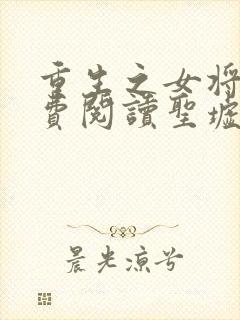 重生之女將
費閱讀聖墟
晨光涼兮